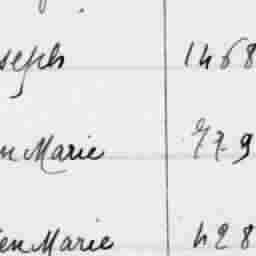 seph 1468
n Marie 779
en Marie 428